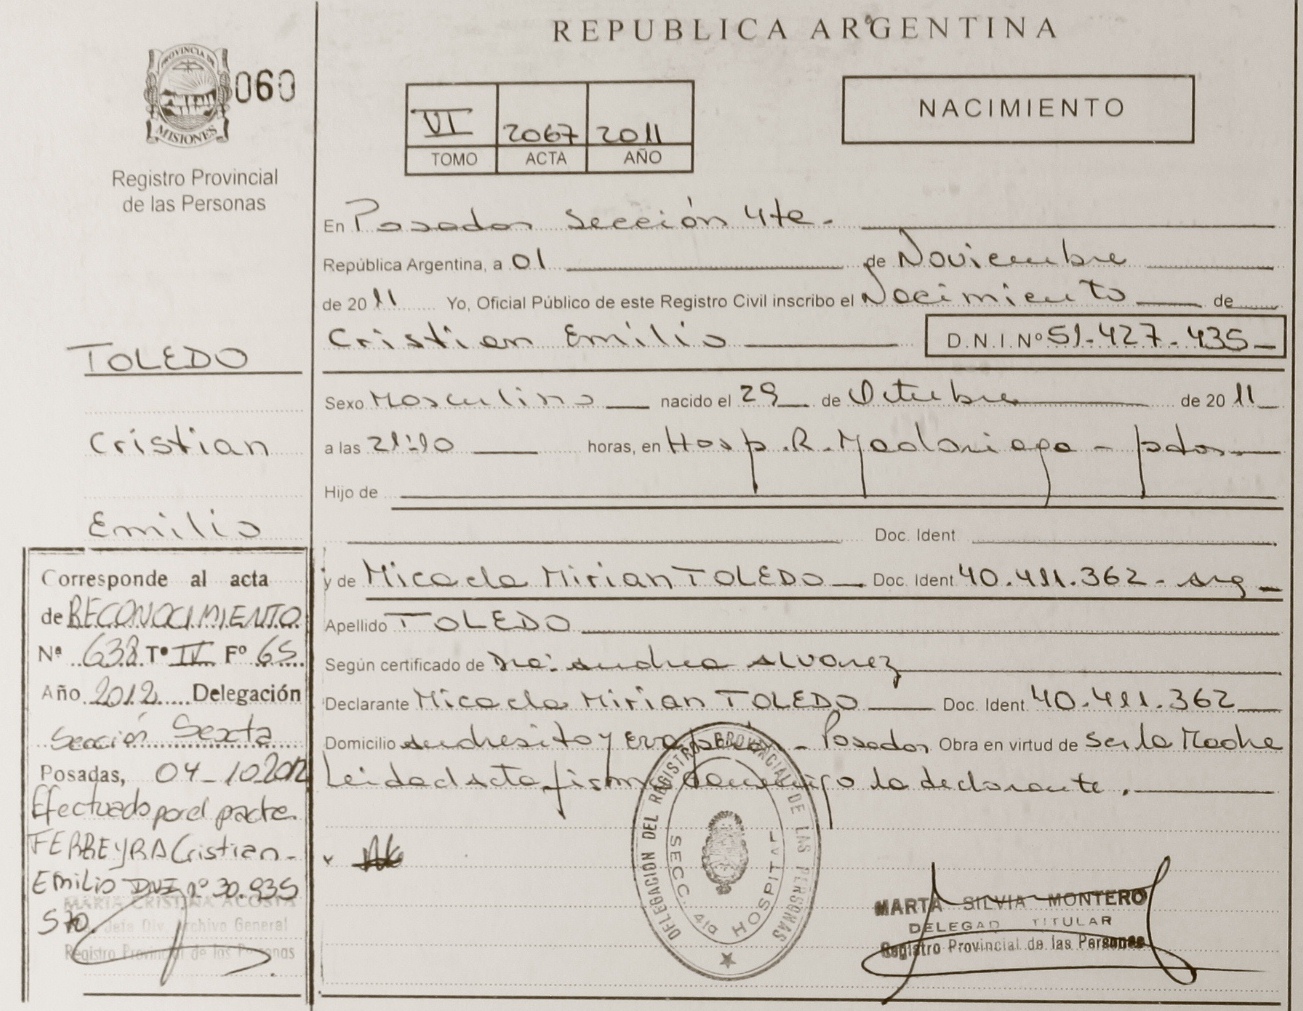 REPUBLICA ARGENTINA
PROVINCIA DE
MISIONES
060
Registro Provincial
de las Personas
VI 2067 2011
TOMO ACTA AÑO
NACIMIENTO
En Posadas Sección 4ta.
República Argentina, a 01 de Noviembre
de 2011 Yo, Oficial Público de este Registro Civil inscribo el Nacimiento de
Cristian Emilio D.N.I. Nº 51.427.435
TOLEDO
Cristian
Emilio
Sexo Masculino nacido el 29 de Octubre de 2011
a las 21:10 horas, en Hosp. R. Madariaga - pdas
Hijo de
Doc. Ident
y de Micaela Mirian TOLEDO Doc. Ident 40.411.362 - arg
Apellido TOLEDO
Según certificado de Dra. Andrea Alvarez
Declarante Micaela Mirian TOLEDO Doc. Ident 40.411.362
Domicilio Andresito y - Posadas Obra en virtud de Ser la Madre
Leida el Acta firma conmigo la declarante.
Corresponde al acta
de RECONOCIMIENTO
Nº 638 Tº IV Fº 65
Año 2012 Delegación
Sección Sexta
Posadas, 04-10-2012
Efectuado por el padre
FERREYRA Cristian
Emilio DNI nº 30.935
570.
MARIA CRISTINA ACOSTA
Jefa Div. Archivo General
Registro Provincial de las Personas
DELEGACIÓN DEL REGISTRO PROVINCIAL DE LAS PERSONAS
SECC. 4ta HOSPITAL
MARTA SILVIA MONTERO
DELEGAD TITULAR
Registro Provincial de las Personas